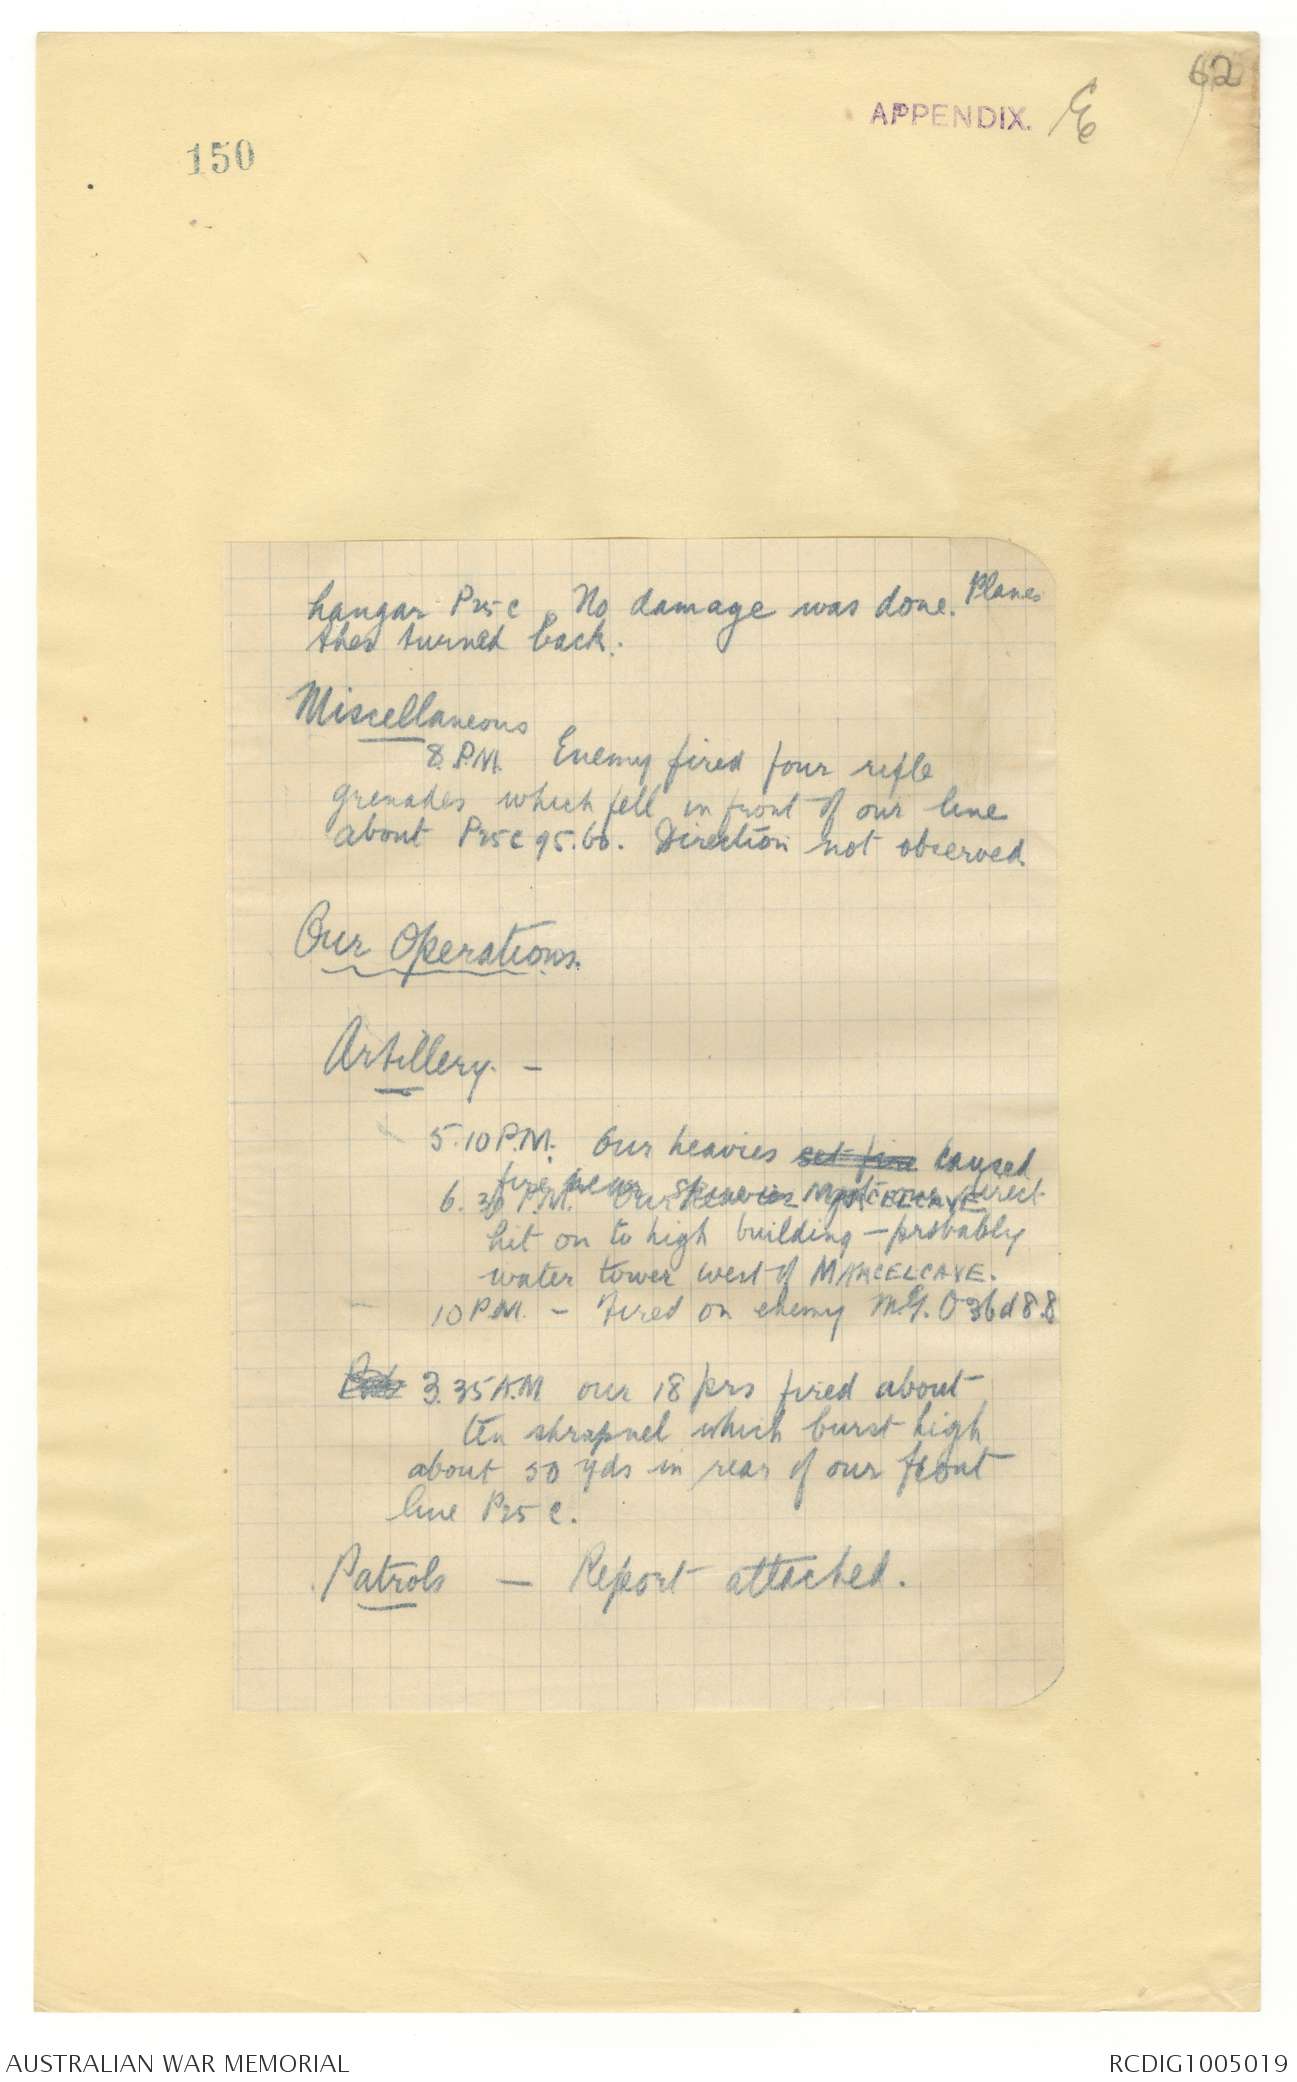 62
APPENDIX. E
150
hangar P25c. No damage was done. Planes
then turned back.
Miscellaneous
8.P.M. Enemy fired four rifle
grenades which fell in front of our line
about P25c 95.60. Direction not observed.
Our Operations.
Artillery. —
5.10 P.M. Our heavies set fire caused
fire near MARCELCAVE
6.30 P.M. Our heavies got one direct
hit on to high building — probably
water tower west of MARCELCAVE.
10 P.M. — Fired on enemy M.G. O36d8.8
3.35 A.M our 18 prs fired about
ten shrapnel which burst high
about 50 yds in rear of our front
line P25c.
Patrols — Report attached.
AUSTRALIAN WAR MEMORIAL
RCDIG1005019